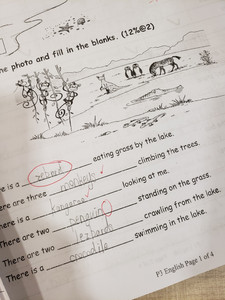 he photo and fill in the blanks. (12%@2)
re is a zebera eating grass by the lake.
ere are three monkeys climbing the trees.
here is a kangaroo looking at me.
There are two penguin standing on the grass.
There are two crawling from the lake.
There is a crocodile swimming in the lake.
P3 English Page 1 of 4